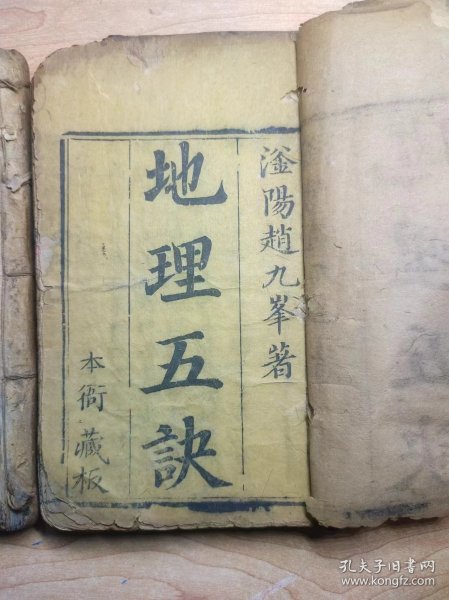 滏陽趙九峯著
地理五訣
本衙藏板
孔夫子旧书网
www.kongfz.com